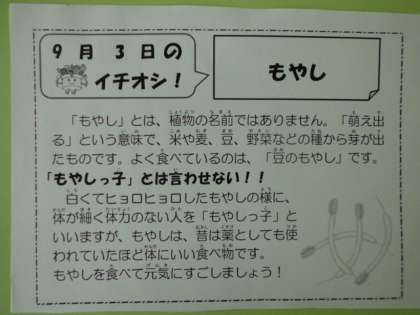 9月3日の
イチオシ！
もやし
「もやし」とは、植物の名前ではありません。「萌え出
る」という意味で、米や麦、豆、野菜などの種から芽が出
たものです。よく食べているのは、「豆のもやし」です。
「もやしっ子」とは言わせない！！
白くてヒョロヒョロしたもやしの様に、
体が細く体力のない人を「もやしっ子」と
いいますが、もやしは、昔は薬としても使
われていたほど体にいい食べ物です。
もやしを食べて元気にすごしましょう！